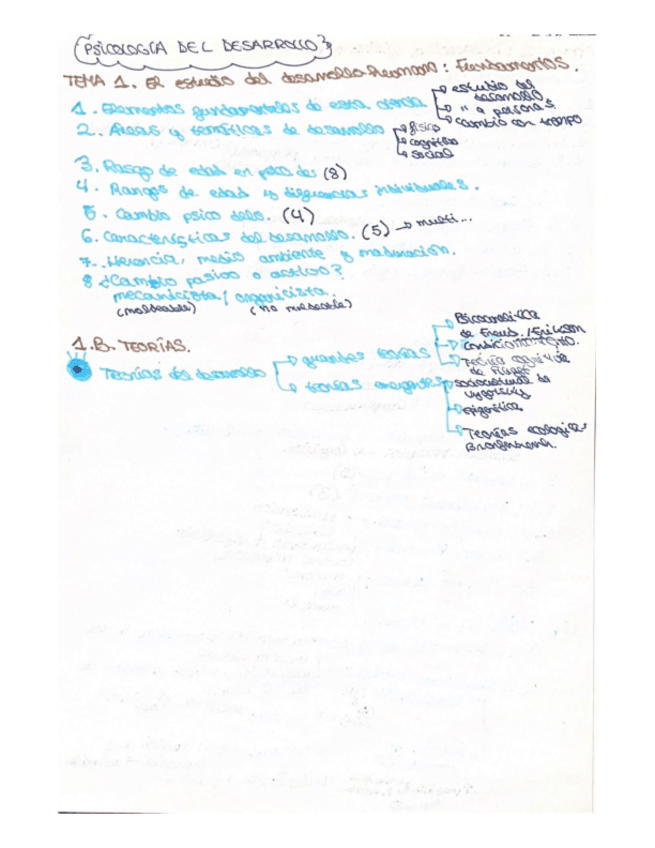 PSICOLOGÍA DEL DESARROLLO
TEMA 1. El estudio del desarrollo humano: Fundamentos.
1. Elementos fundamentales de esta ciencia
estudio del desarrollo
" a personas
cambio con tiempo
2. Áreas y temáticas de desarrollo
físico
cognitivo
social
3. Rasgo de edad en (8)
4. Rangos de edad y diferencias individuales.
5. Cambio psico dello. (4)
6. Características del desarrollo. (5) → multi...
7. Herencia, medio ambiente y maduración.
8 ¿Cambio pasivo o activo?
mecanicista / organicista.
(moldeable) (no moldeable)
1.B. TEORÍAS.
Teorías del desarrollo
grandes teorías
Psicoanalítica
de Freud. / Erikson
Condicionamiento.
Teoría cognitiva
de Piaget
teorías emergentes
sociocultural de
Vygotsky
epigenética
Teorías ecológicas
Bronfenbrenner.